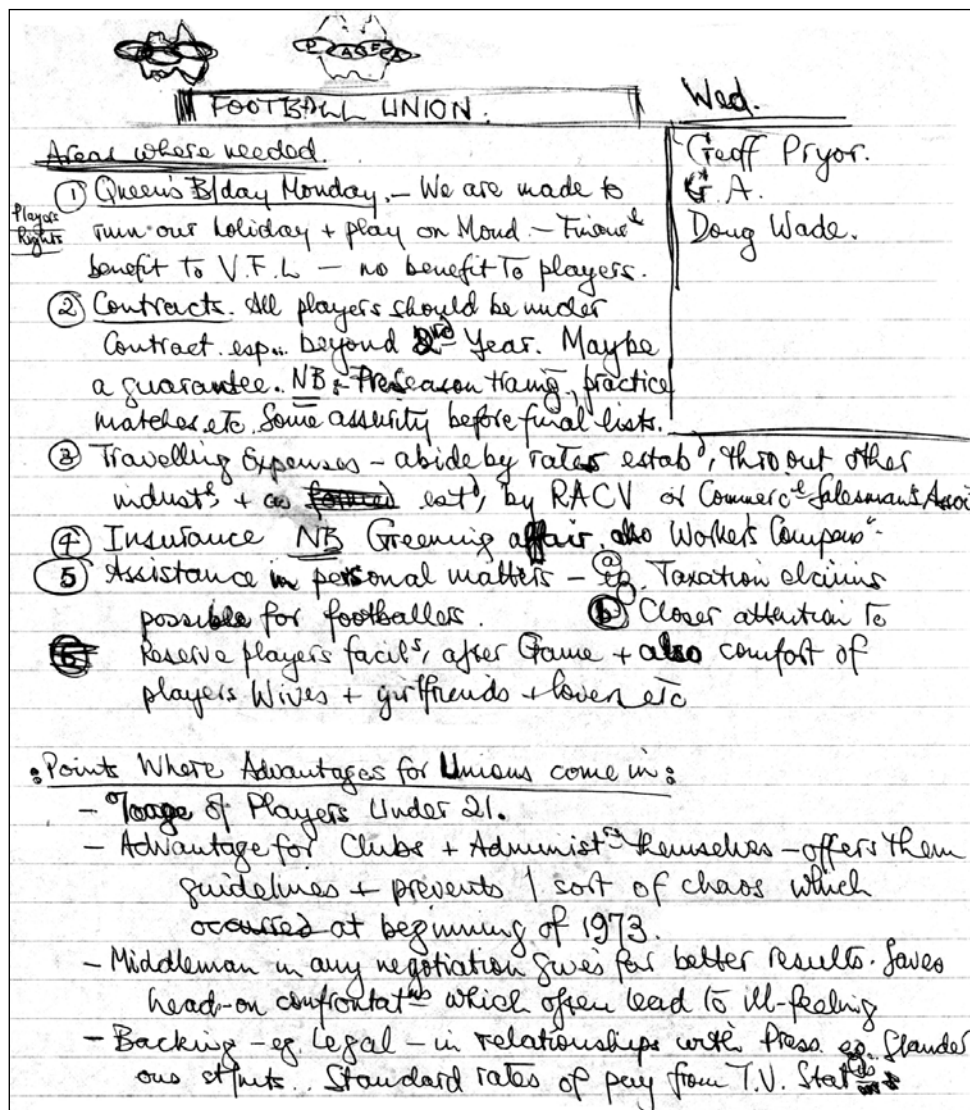 P A F A
FOOTBALL UNION.
Wed.
Geoff Pryor.
G. A.
Doug Wade.
Areas where needed.
Players Rights
① Queen's B/day Monday. – We are made to
ruin our holiday + play on Mond – Financˡ
benefit to V.F.L – no benefit to players.
② Contracts. All players should be under
Contract esp... beyond 2ⁿᵈ Year. Maybe
a guarantee. NB:- PreSeason traing, practice
matches, etc. Some assurity before final lists.
③ Travelling Expenses – abide by rates estabᵈ, thro out other
industˢ, + as estᵈ, by RACV or Commercˡ Salesman's Assoc
④ Insurance NB Greening affair. also Worker's Compensⁿ
⑤ Assistance in personal matters – ⓐ Taxation claims
possible for footballers. ⓑ Closer attention to
Reserve players facilˢ, after Game + also comfort of
players Wives + girlfriends + lovers etc
: Points Where Advantages for Unions come in :
- %age of Players Under 21.
- Advantage for Clubs + Administʳˢ themselves – offers them
guidelines + prevents / sort of chaos which
occurred at beginning of 1973.
- Middleman in any negotiation gives far better results. Saves
head-on confrontatⁿˢ which often lead to ill-feeling
- Backing – eg. Legal – in relationships with Press. eg. Slander
ous stm'nts.. Standard rates of pay from T.V. Statⁿˢ